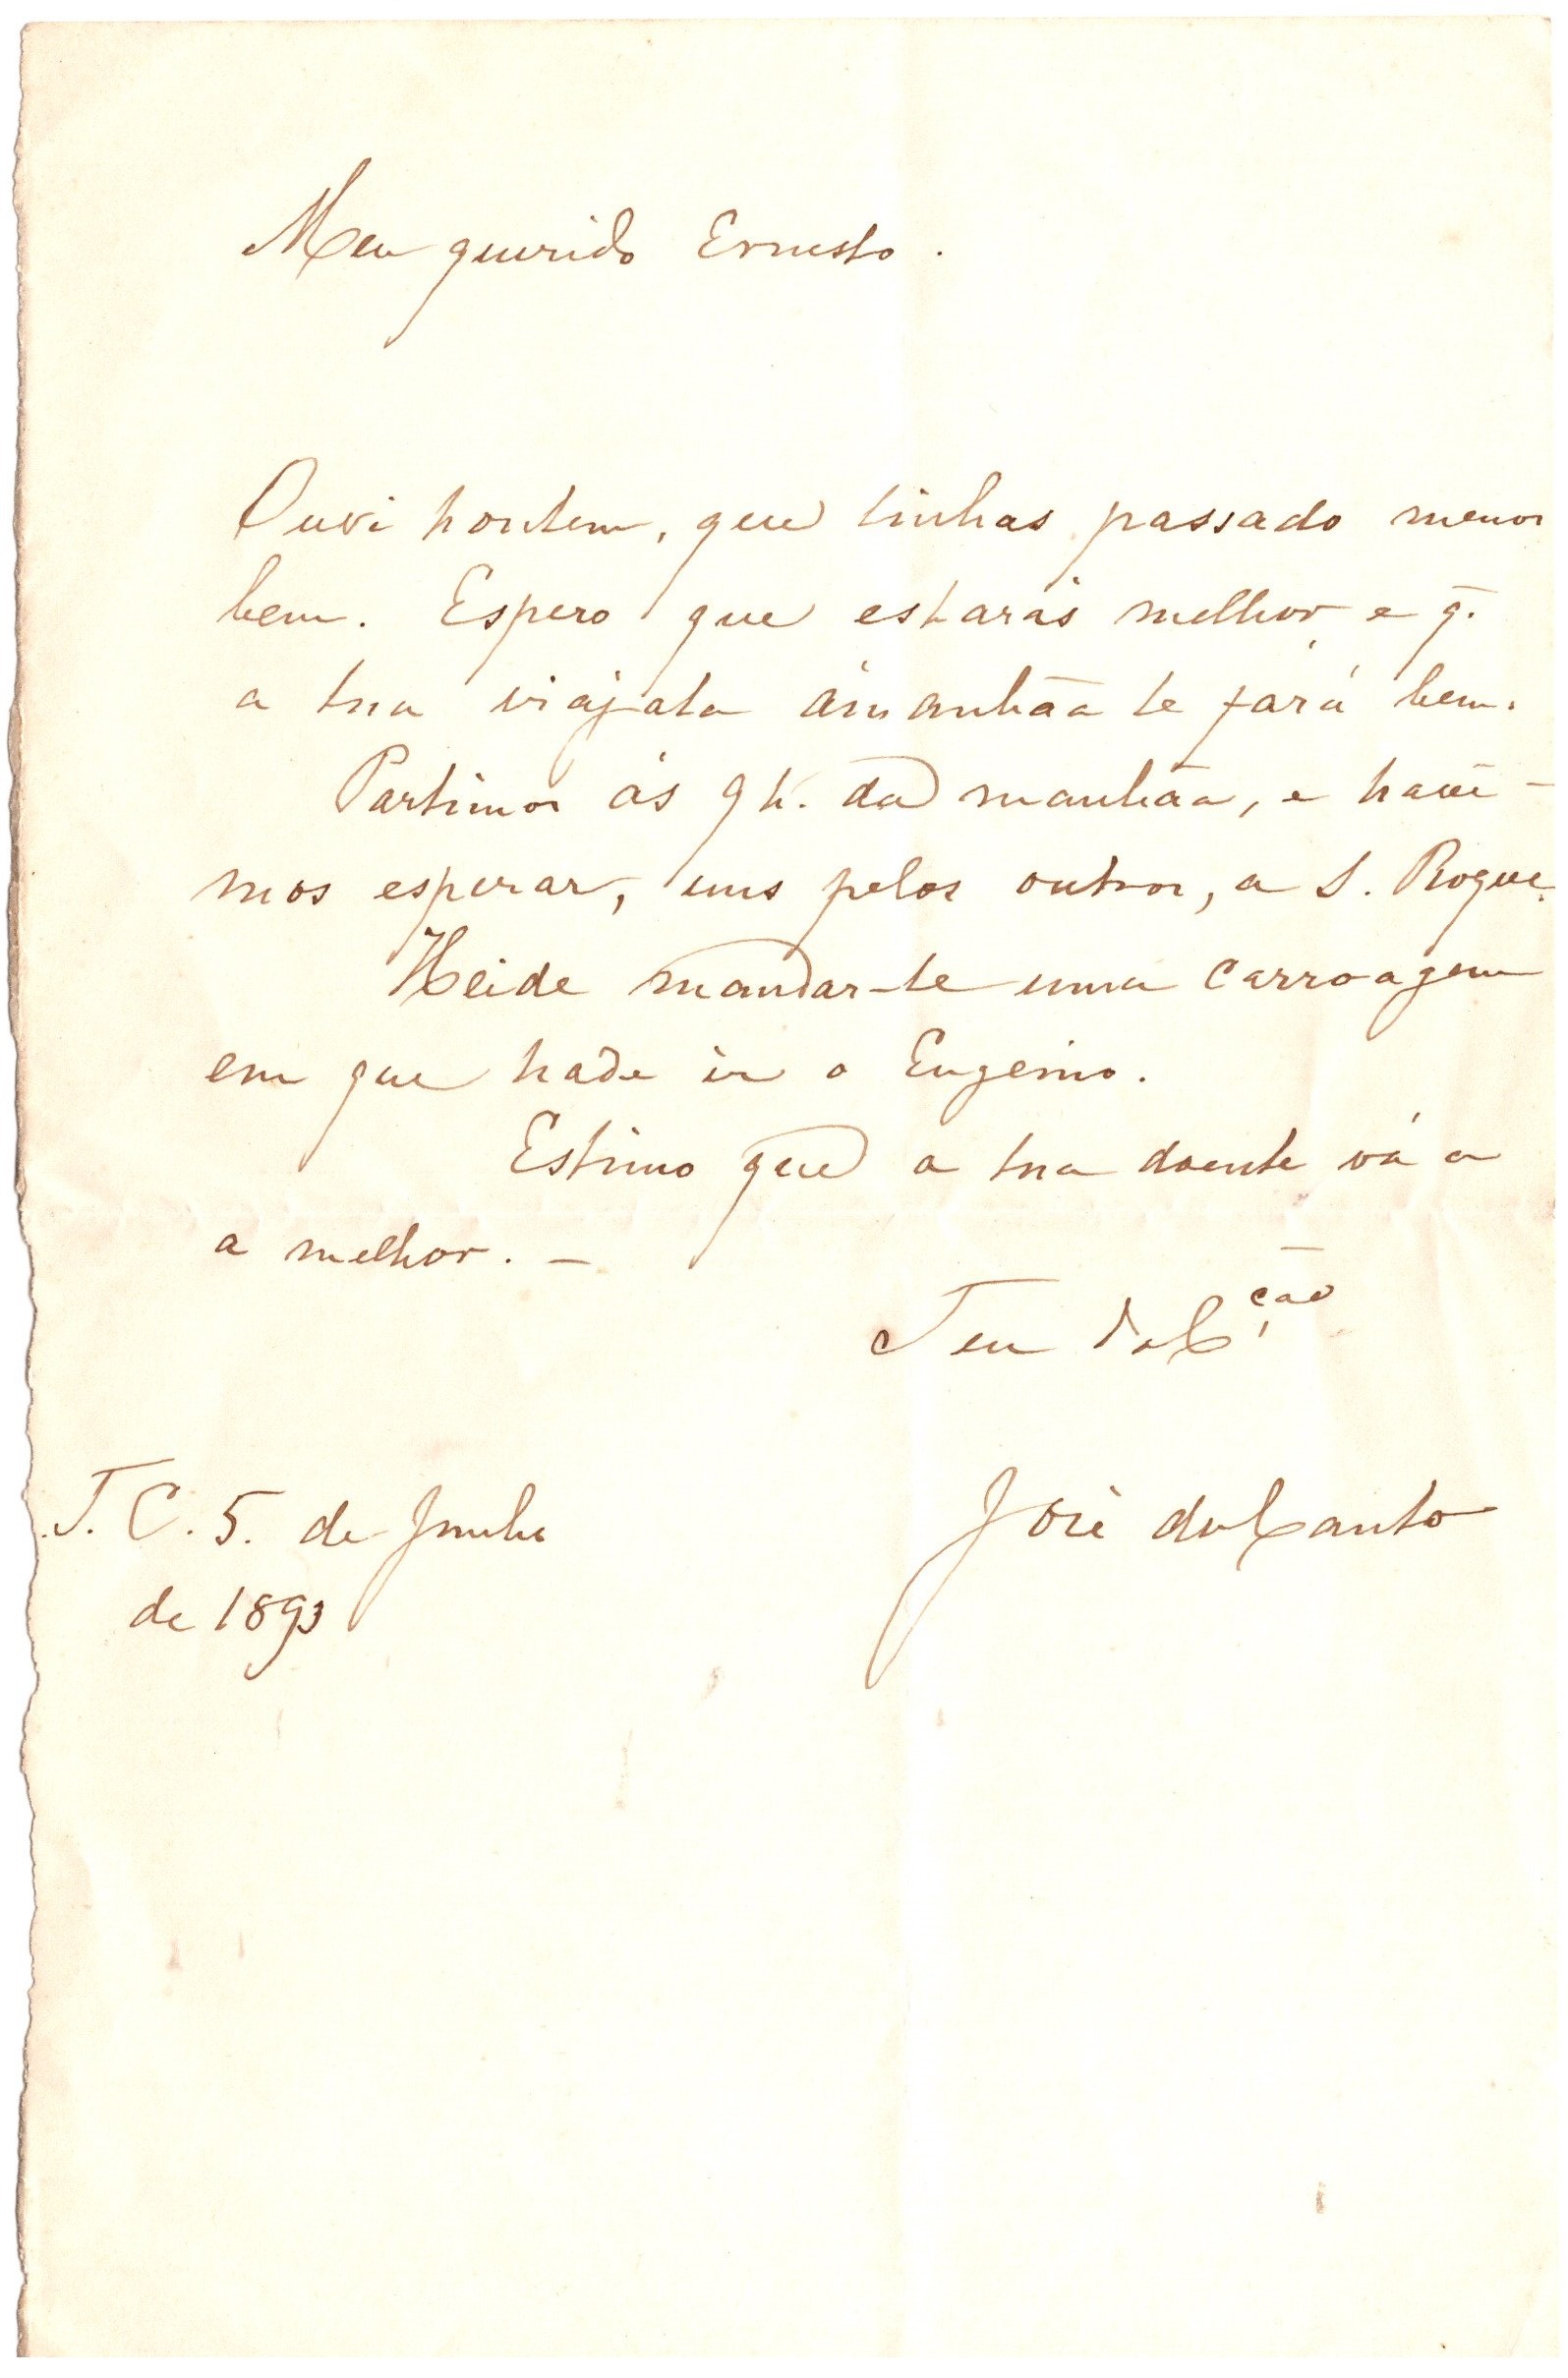 Meu querido Ernesto.
Ouvi hontem, que tinhas passado menos
bem. Espero que estarás melhor e q̄.
a tua viajata ámanhãa te fará bem.
Partimos ás 9 h. da manhãa, e havê-
mos esperar, uns pelos outros, a S. Roque.
Heide mandar-te uma carroagem
em que hade ir o Eugenio.
Estimo que a tua doente vá a
a melhor. –
Teu do C.ção
José do Canto
J. C. 5. de Junho
de 1893